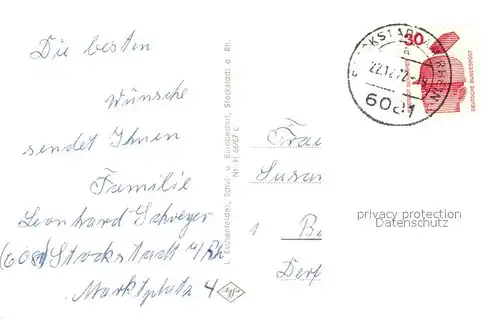 Die besten
Wünsche
sendet Ihnen
Familie
Leonhard Schreyer
(6081) Stockstadt a/Rh
Marktplatz 4
L. Eschenfelder, Schul- u. Bürobedarf, Stockstadt a. Rh.
Nr. H 6667 c
30
DEUTSCHE BUNDESPOST
STOCKSTADT RHEIN
22.12.72
6081
Frau
Susan
1 Be
Derf
privacy protection
Datenschutz